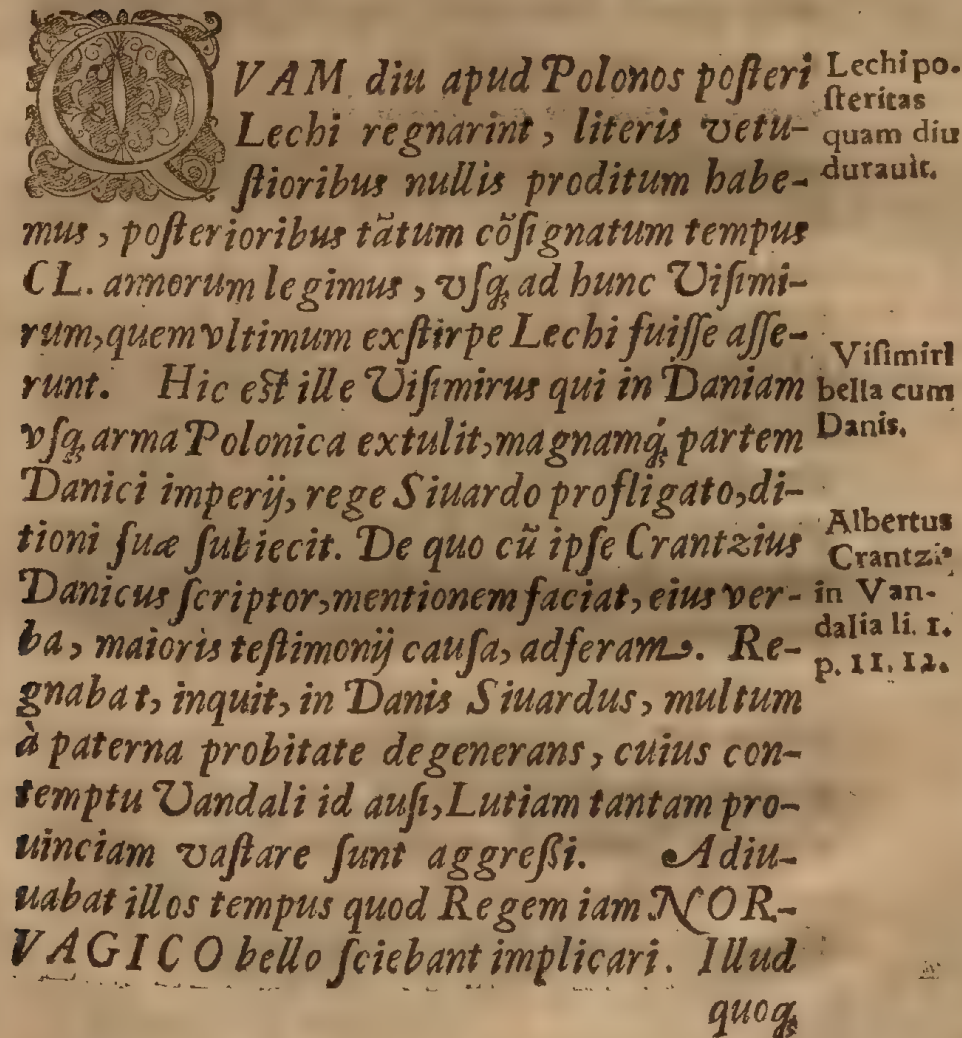 QVAM diu apud Polonos poſteri
Lechi regnarint, literis vetu-
ſtioribus nullis proditum habe-
mus, poſterioribus tãtum cõſignatum tempus
CL. annorum legimus, vſqꝫ ad hunc Viſimi-
rum, quem vltimum ex ſtirpe Lechi fuiſſe aſſe-
runt. Hic eſt ille Viſimirus qui in Daniam
vſqꝫ arma Polonica extulit, magnamqꝫ́ partem
Danici imperij, rege Siuardo profligato, di-
tioni ſuæ ſubiecit. De quo cũ ipſe Crantzius
Danicus ſcriptor, mentionem faciat, eius ver-
ba, maioris teſtimonij cauſa, adferam. Re-
gnabat, inquit, in Danis Siuardus, multum
à paterna probitate degenerans, cuius con-
temptu Vandali id auſi, Lutiam tantam pro-
uinciam vaſtare ſunt aggreßi. Adiu-
uabat illos tempus quod Regem iam NOR-
VAGICO bello ſciebant implicari. Illud
quoqꝫ
Lechi po-
ſteritas
quam diu
durauit.
Viſimiri
bella cum
Danis.
Albertus
Crantziꝰ
in Van-
dalia li. 1.
p. 11. 12.